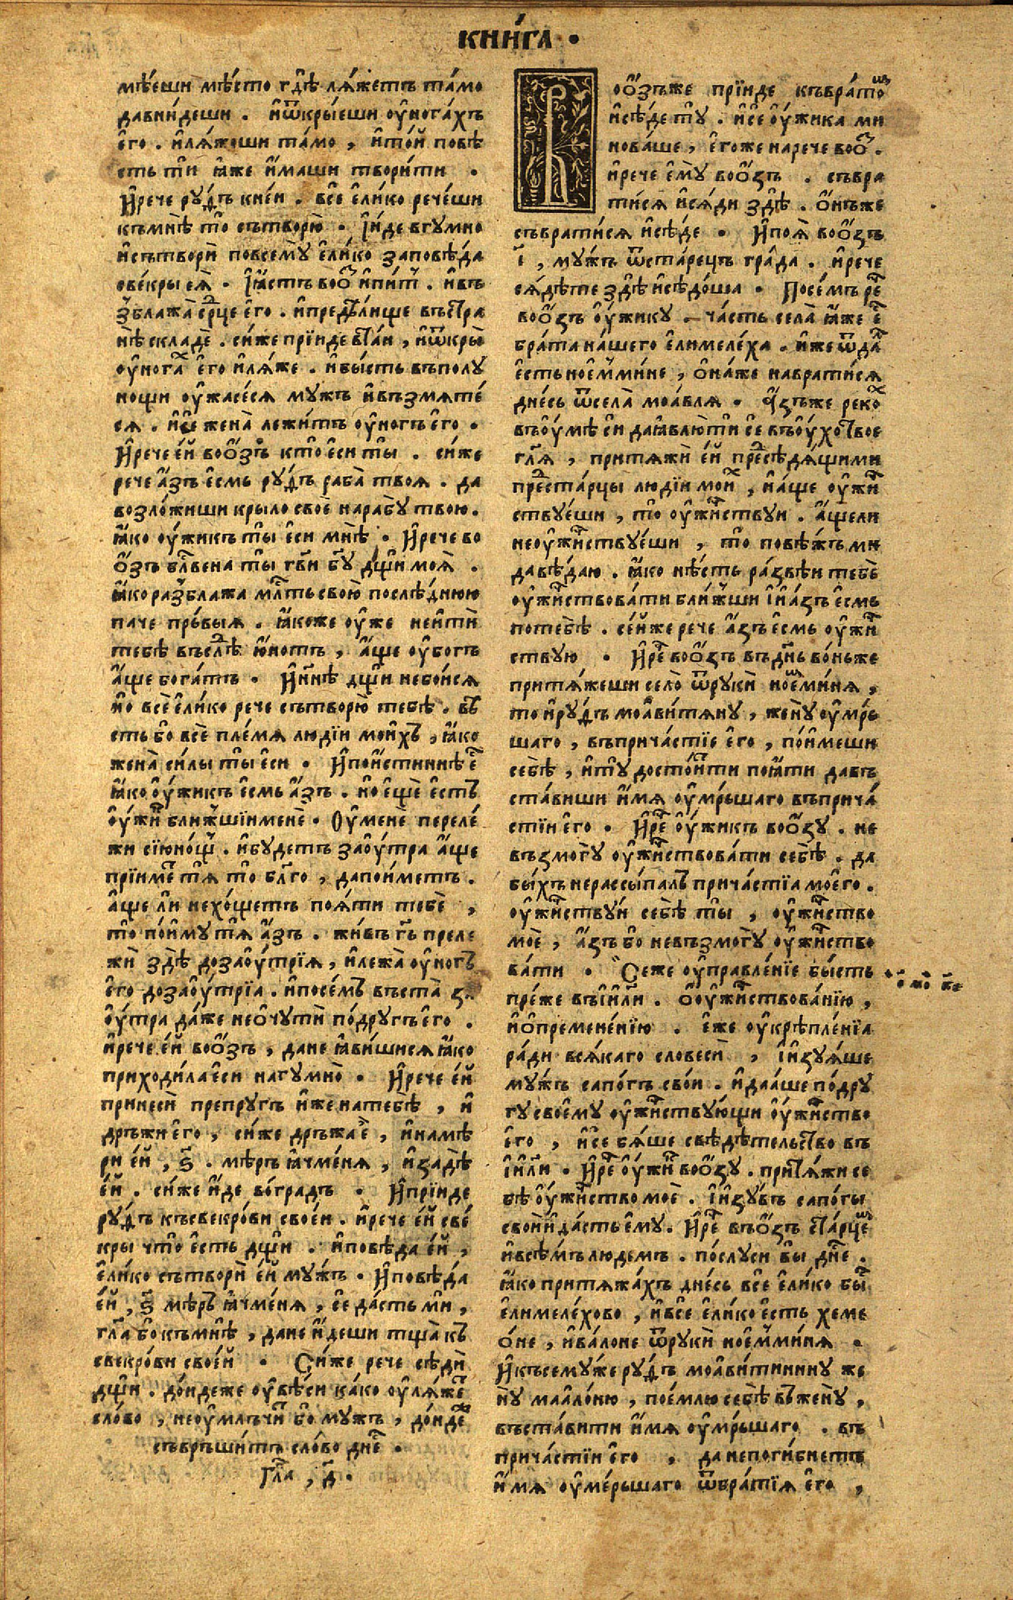 КНИ́ГА •
мѣ́еши мѣ́сто гдѣ̀ ля́жетъ та́мо
давни́деши . и҆ѿкры́еши оу҆нога́хъ
є҆го̀ . и҆ля́жеши та́мо , и҆то́й повѣ́
сть ти ꙗ҆́же и҆́маши твори́ти •
И҆рече ру́ѳъ кне́и . все є҆ли́ко рече́ши
къмнѣ̀ то̀ сътворю̀ • І҆и́де вгумно
и҆сътворѝ повсему̀ є҆ли́ко заповѣ́да
свекры̀ еѧ̀ •
нѣ скла́дѐ . си́же прїи́де вта́и , и҆ѿкры̀
оу҆нога̀ є҆го̀ и҆ля́же . и҆бы́сть въполу
нощи оу҆жасе́ся мужъ и҆възмяте́
ся . и҆сѐ жена̀ лежи́тъ оу҆ногъ є҆го̀ •
И҆рече є҆́й воо́зъ кто̀ єси ты̀ . си́же
рече а҆́зъ є҆́смь ру́ѳъ раба̀ твоя̀ . да
возло́жиши крыло̀ своѐ нарабу̀ твою̀ .
ꙗ҆́ко оу҆́жикъ ты̀ єси мнѣ̀ • И҆рече во
о́зъ блⷭ҇вена ты̀ гв҃и бг҃у дщ҃и моя̀ .
ꙗ҆́ко разблажа̀ млⷭ҇ть свою̀ послѣ́днюю
паче пръвыя . ꙗ҆́коже оу҆́же неитѝ
тебѣ въслѣ́дъ ю҆́нотъ , а҆́ще оу҆богъ
а҆́ще богатъ • И҆нн҃ѣ дщ҃и небо́ися
но всѐ є҆ли́ко рече сътворю̀ тебѣ̀ . вѣ́
сть бо всѐ пле́мя люді́и мои́хъ , ꙗ҆́ко
жена̀ си́лы ты̀ єси • И҆пои́стиннѣ
ꙗ҆́ко оу҆́жикъ є҆́смь а҆́зъ . но є҆щѐ є҆́стъ
оу҆́жикъ ближшїи менѐ • Оу҆мене преле́
жи сїю́нощъ . и҆бу́детъ зао́утра а҆́ще
прїи́метъ тя̀ то̀ бл҃го , дапои́метъ .
а҆́ще ли нехо́щетъ поя́ти тебѐ ,
то̀ поиму̀ тя̀ а҆́зъ . жи́въ гь҃ преле
жѝ здѣ̀ дозаоу́трїя , и҆лежа̀ оу҆ногъ
є҆го̀ дозаоу́трїа . и҆посе́мъ въста̀
оу҆́тра да́же неочутѝ по́другъ є҆го̀ .
и҆рече є҆́й воо́зъ , дане ꙗ҆ви́шися ꙗ҆́ко
приходи́ла єси нагумно̀ • И҆рече є҆́й
принесѝ препругъ и҆́же натебѣ̀ , и҆
дръжи є҆го̀ , си́же дръжа̀ , и҆намѣ
ри є҆́й , ѕ҃ . мѣръ ꙗ҆чме́ня , и҆задѣ̀
є҆́й . си́же и҆́де во́градъ • И҆прїи́де
ру́ѳъ къ свекро́ви свое́и . и҆рече є҆́й све́
кры что̀ є҆́сть дщ҃и . и҆повѣ́да є҆́й ,
є҆ли́ко сътворѝ є҆́й мужъ • И҆повѣ́да
є҆́й , ѕ҃ мѣръ ꙗ҆чме́ня , сѐ да́сть ми ,
гл҃а бо къмнѣ̀ , дане и҆́деши тща̀ къ
свекро́ви свое́й • Си́же рече сѣдѝ
дщ҃и . до́ндеже оу҆вѣ́си ка́ко оу҆ля́жетъ
сло́во , неоумлъчи́тъ бо мужъ , до́ндеже
съвръши́тъ сло́во дне́сь •
Гла , д҃ •
Воо́зъже прїи́де къврато́мъ
и҆сѣ́де ту̀ . и҆сѐ оу҆́жика ми
нова́ше , є҆го́же нарече воо́зъ .
и҆рече є҆му̀ воо́зъ . съвра
ти́ся и҆ся́ди здѣ̀ . О҆́нъже
съврати́ся и҆сѣ́де • И҆поя̀ воо́зъ
і҃ , мужъ ѿста́рецъ гра́да . и҆рече
ся́дѣте здѣ̀ и҆сѣдо́ша • Посе́мъ рече
воо́зъ оу҆́жику — ча́сть села̀ ꙗ҆́же є҆́сть
бра́та нашего є҆лимеле́ха . и҆́же ѿда́
є҆́сть ноемми́не , о҆на́же наврати́ся
дне́сь ѿсела̀ моа́вля • А҆́зъже реко́хъ
въоу́мѣ си да ꙗ҆влю̀ ти сѐ въоу́хо твое
гл҃я , притяжѝ є҆́й пресѣдя́щими
пре́старцы люді́и мои́хъ , и҆а́ще оу҆́жи
ствуе́ши , то̀ оу҆́жиствуи . а҆́щели
неоу́жиствуе́ши , то̀ повѣ́жъ ми
давѣ́даю . ꙗ҆́ко нѣ́сть ра́звѣи тебѐ
оу҆́жиствова́ти бли́жши і҆и҆а́зъ є҆́смь
потебѣ̀ . се́йже рече а҆́зъ є҆́смь оу҆́жи
ствую • И҆рече воо́зъ въ дн҃ь во́ньже
притя́жеши село̀ ѿрукѝ ноемми́ня ,
то и҆ру́ѳъ моави́тяну , жену̀ оу҆мръ
шаго , въприча́стїе є҆го̀ , по́имеши
себѣ̀ , и҆ту̀ досто́итъ поꙗ҆ти давъ
ста́виши и҆́мя оу҆мръшаго въприча́
стїи є҆го̀ • И҆рече оу҆́жикъ воо́зу . не
възмогу̀ оу҆́жиствова́ти себѣ̀ . да
бы́хъ нерассы́палъ прича́стїа моего̀ .
оу҆́жиствуи себѣ̀ ты̀ , оу҆́жиство
моѐ , а҆́зъ бо невъзмогу̀ оу҆́жиство
ва́ти • Се́же оу҆правле́нїе бы́сть
пре́же въ і҆и҃ли . о҆оу́жиствова́нїю ,
и҆опремене́нїю . є҆́же оу҆крѣпле́нїа
ра́ди вся́каго словесѝ , і҆изу́яше
мужъ сапо́гъ сво́и . и҆дааше по́дру
гу своему̀ оу҆́жиствующи оу҆́жиство
є҆го̀ , и҆сѐ бя́ше свѣдѣ́тельство въ
і҆и҃ли • И҆рече оу҆́жикъ воо́зу . притя́жи се
бѣ̀ оу҆́жиство моѐ . і҆изу́въ сапо́гы
своѝ и҆да́сть є҆му̀ . И҆рече въо́зъ ста́рцемъ
и҆всѣ́мъ людемъ . по́слуси вы̀ дне́сь .
ꙗ҆́ко притяжа́хъ дне́сь все є҆ли́ко бы̀
є҆лимеле́хово , и҆все є҆ли́ко є҆́сть хеме
о́не , и҆ва́лоне ѿрукѝ ноемми́ня •
И҆къ сему́же ру́ѳъ моави́тинину же
ну̀ маало́ню , пое́млю себѣ̀ въжену̀ ,
въста́вити и҆́мя оу҆мръшаго . въ
прича́стїи є҆го̀ , да непоги́бнетъ
и҆́мя оу҆ме́ръшаго ѿбра́тїя є҆го̀ ,